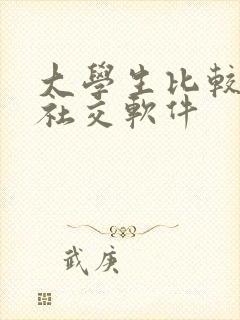 太學生比較
社交軟件
武庚